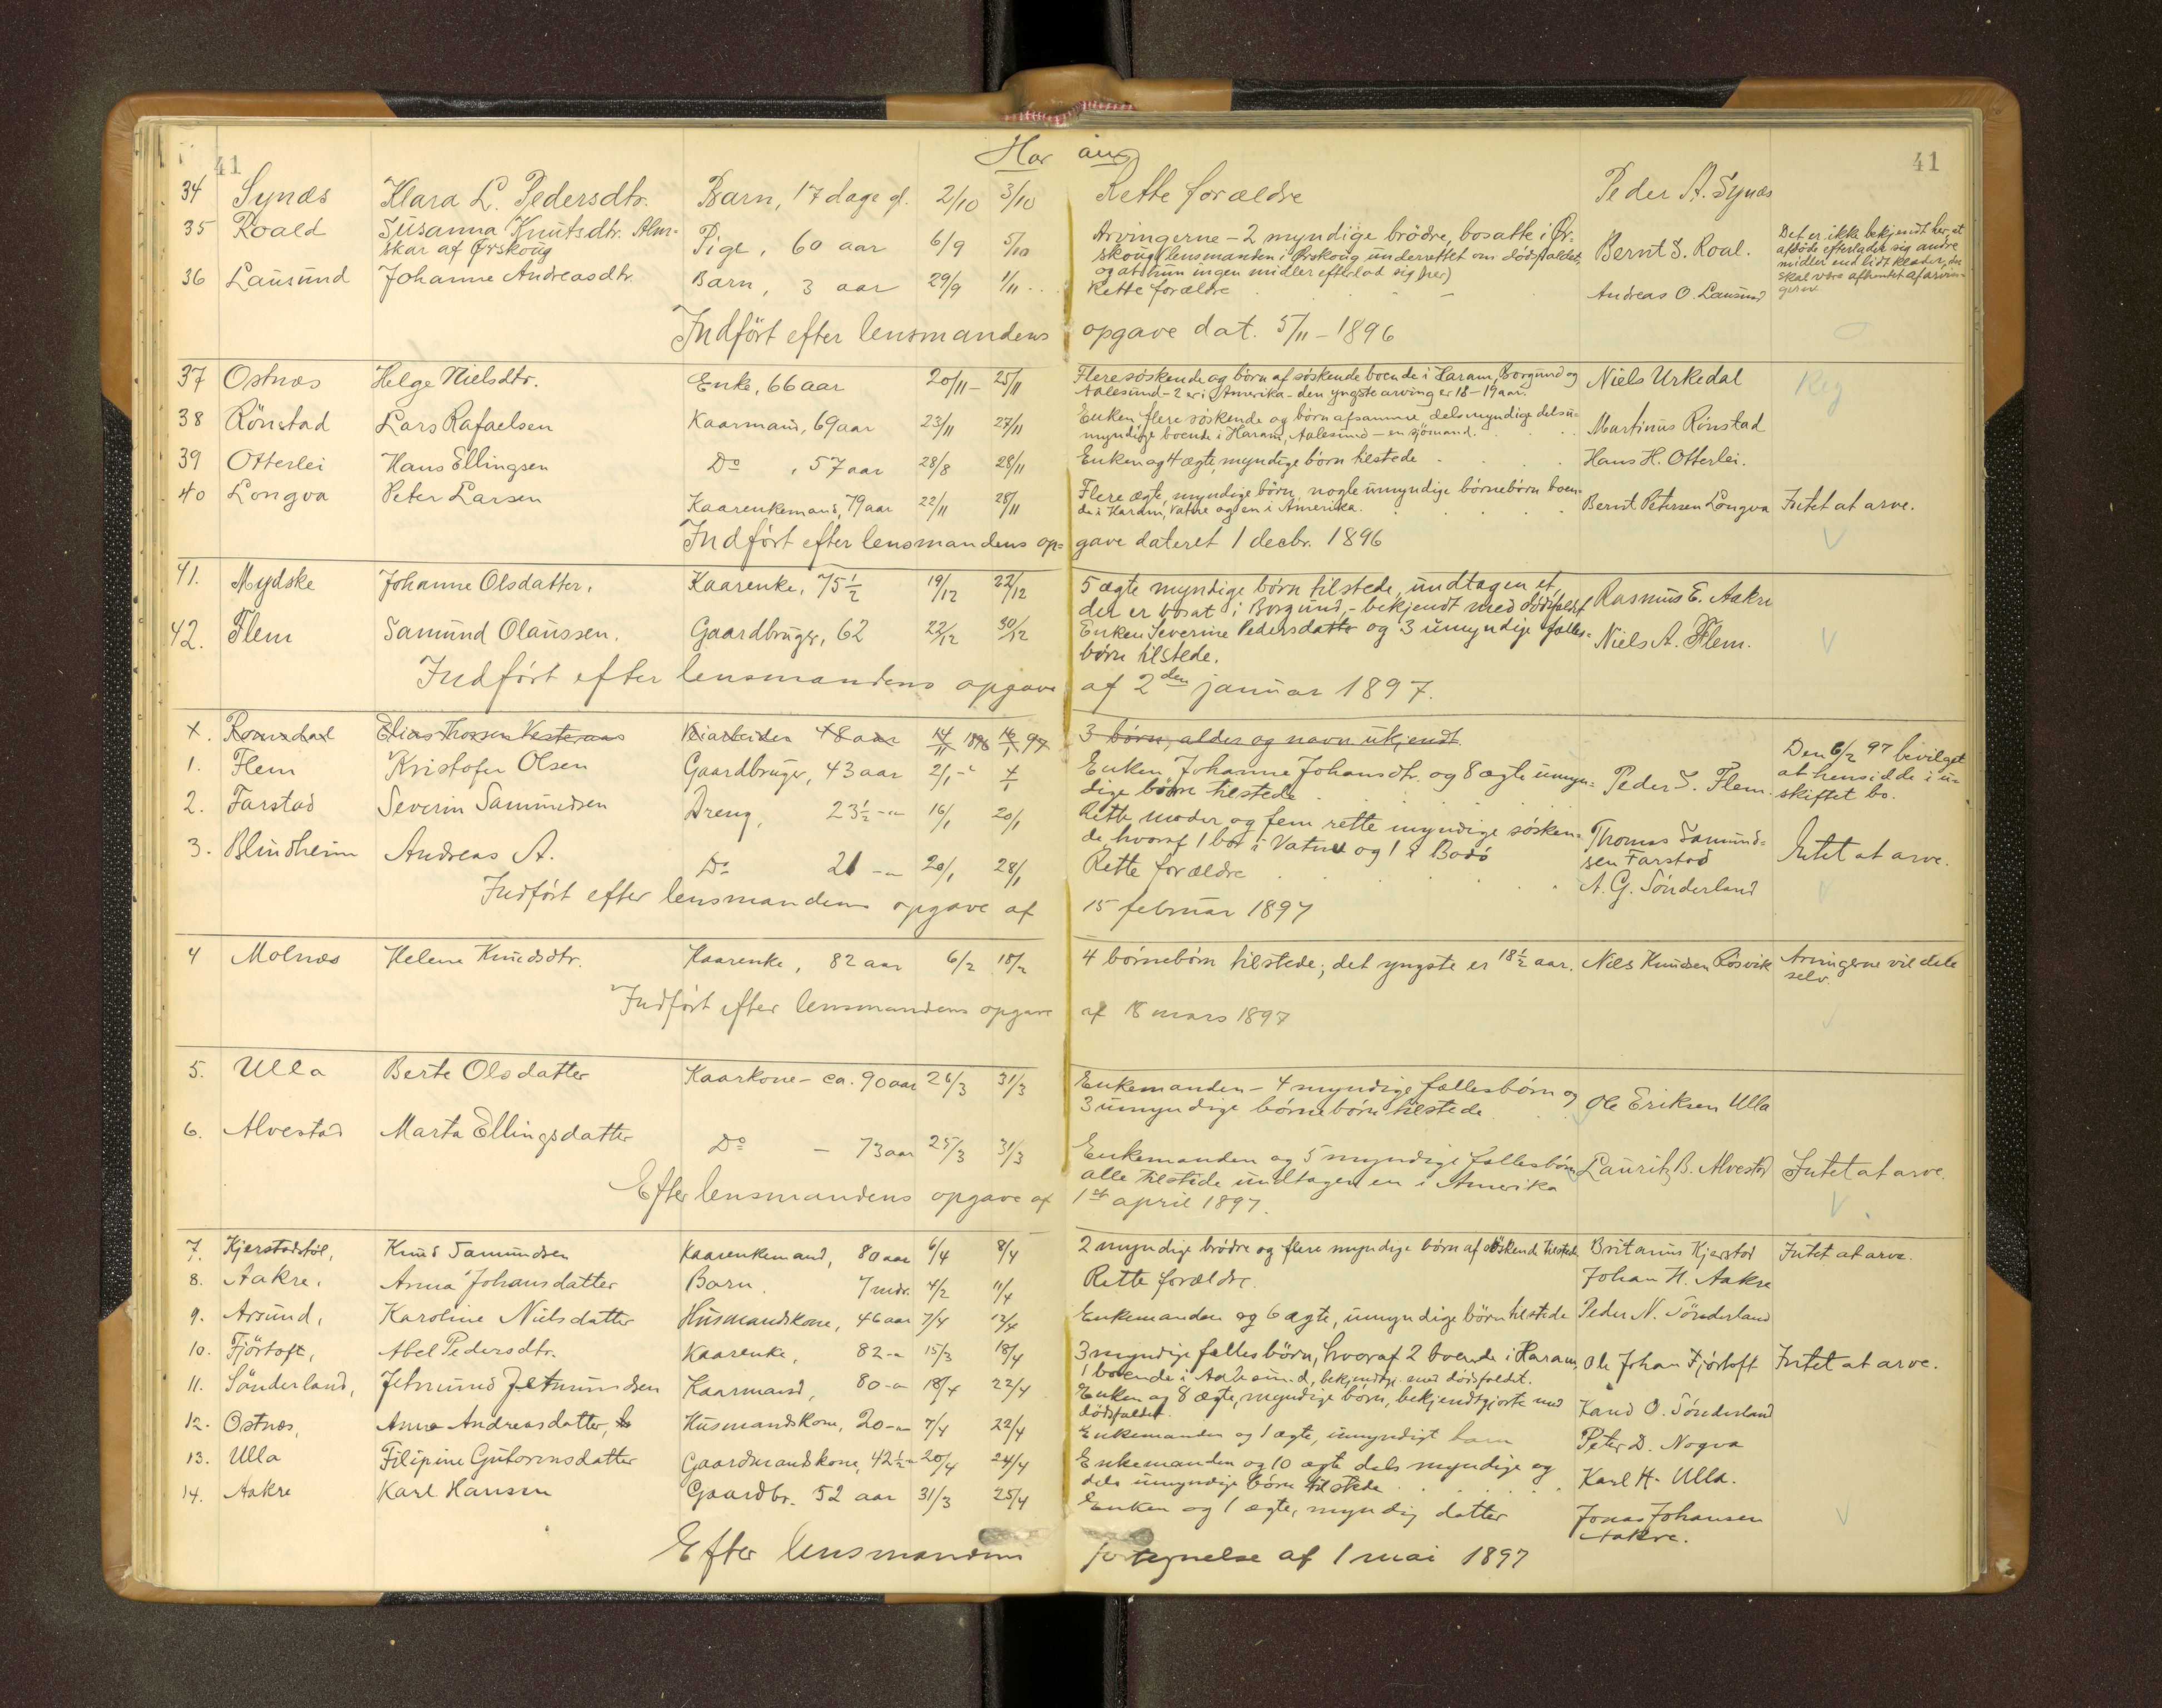 41 Har am 41
34 Synæs Klara L. Pedersdtr. Barn, 17 dage gl. 2/10 3/10 Rette forældre Peder A. Synæs
35 Roald Susanna Knutsdtr. Alm- Pige, 60 aar 6/9 5/10 Arvingerne – 2 myndige brödre, bosatte i Ør- Bernt S. Roal. Det er ikke bekjendt her, at
skar af Ørskoug skoug (lensmanden i Ørskoug underrettet om dödsfaldet, afdöde efterlader sig andre
og at hun ingen midler efterlod sig her) midler end lidt klæder, der
36 Lausund Johanne Andreasdtr. Barn, 3 aar 29/9 1/11 Rette forældre Andreas O. Lausund skal være afhentet af arvin-
gerne
Indført efter lensmandens opgave dat. 5/11 – 1896
37 Ostnæs Helge Nielsdtr. Enke, 66 aar 20/11 – 25/11 Flere søskende og børn af søskende boende i Haram, Borgund og Niels Urkedal Reg
Aalesund – 2 er i Amerika – den yngste arving er 18–19 aar.
38 Rönstad Lars Rafaelsen Kaarmand, 69 aar 23/11 27/11 Enken, flere søskende og børn af samme, dels myndige dels u- Martinus Rönstad
myndige boende i Haram, Aalesund – en sjömand.
39 Otterlei Hans Ellingsen Do , 57 aar 28/8 28/11 Enken og 4 ægte, myndige börn tilstede Hans H. Otterlei.
40 Longva Peter Larsen Kaarenkemand, 79 aar 22/11 28/11 Flere ægte, myndige börn, nogle umyndige börnebörn boen- Bernt Petersen Longva Intet at arve.
de i Haram, Vatne og en i Amerika.
Indført efter lensmandens op- gave dateret 1 decbr. 1896
41. Mydske Johanne Olsdatter, Kaarenke, 75 1/2 19/12 22/12 5 ægte myndige børn tilstede, undtagen et, Rasmus E. Aakre
der er bosat i Borgund, – bekjendt med dödsfaldet
42. Flem Samund Olaussen. Gaardbruger, 62 22/12 30/12 Enken Severine Pedersdatter og 3 umyndige fælles- Niels A. Flem.
børn tilstede.
Indført efter lensmandens opgave af 2den januar 1897.
x. Romsdal Elias Thorsen Vestenaas 48 aar 14/11 1896 16/1 97 3 børn, alder og navn ukjendt
1. Flem Kristofer Olsen Gaardbruger, 43 aar 2/1 4/1 Enken, Johanne Johansdtr. og 8 ægte umyn- Peder S. Flem. Den 6/2 97 bevilget
dige børn tilstede at hensidde i u-
skiftet bo.
2. Farstad Severin Samundsen Dreng, 23 1/2 – " 16/1 20/1 Rette moder og fem rette myndige søsken- Thomas Samund-
de hvoraf 1 bor i Vatne og 1 i Bodö sen Farstad Intet at arve.
3. Blindheim Andreas A. Do 21 – " 20/1 28/1 Rette forældre A. G. Sönderland
Indført efter lensmandens opgave af 15 februar 1897
4 Molnæs Helene Knudsdtr. Kaarenke, 82 aar 6/2 18/2 4 børnebørn tilstede; det yngste er 18 1/2 aar. Niels Knudsen Rösvik Arvingerne vil dele
selv.
Indført efter lensmandens opgave af 18 mars 1897
5. Ulla Berte Olsdatter Kaarkone – ca. 90 aar 26/3 31/3 Enkemanden – 4 myndige fællesbørn og Ole Eriksen Ulla
3 umyndige børnebørn tilstede
6. Alvestad Marta Ellingsdatter Do – 73 aar 25/3 31/3 Enkemanden og 5 myndige fællesbørn Lauritz B. Alvestad Intet at arve.
alle tilstede undtagen en i Amerika
Efter lensmandens opgave af 1st april 1897.
7. Kjerstadstöl, Knud Samundsen Kaarenkemand, 80 aar 6/4 8/4 2 myndige brödre og flere myndige børn af söskende tilstede Britanus Kjerstad Intet at arve.
8. Aakre, Anna Johansdatter Barn. 7 mdr. 4/2 11/4 Rette forældre. Johan H. Aakre
9. Arsund, Karoline Nielsdatter Husmandskone, 46 aar 7/4 12/4 Enkemanden og 6 ægte, umyndige börn tilstede Peder N. Sönderland
10. Fjörtoft, Abel Pedersdtr. Kaarenke, 82 – " 15/3 18/4 3 myndige fællesbörn, hvoraf 2 boende i Haram, Ole Johan Fjörtoft Intet at arve.
1 boende i Aalesund, bekjendtgj. med dödsfaldet.
11. Sönderland, Jetmund Jetmundsen Kaarmand, 80 – " 18/4 22/4 Enken og 8 ægte, myndige børn, bekjendtgjorte med Knud O. Sönderland
dödsfaldet.
12. Ostnæs, Anne Andreasdatter, Husmandskone, 20 – " 7/4 22/4 Enkemanden og 1 ægte, umyndigt barn Peter D. Nogva
13. Ulla Filipine Gutormsdatter Gaardmandskone, 42 1/2 – 20/4 24/4 Enkemanden og 10 ægte dels myndige og Karl H. Ulla.
dels umyndige børn tilstede
14. Aakre Karl Hansen Gaardbr. 52 aar 31/3 25/4 Enken og 1 ægte, myndig datter Jonas Johansen
Aakre.
Efter lensmandens fortegnelse af 1 mai 1897